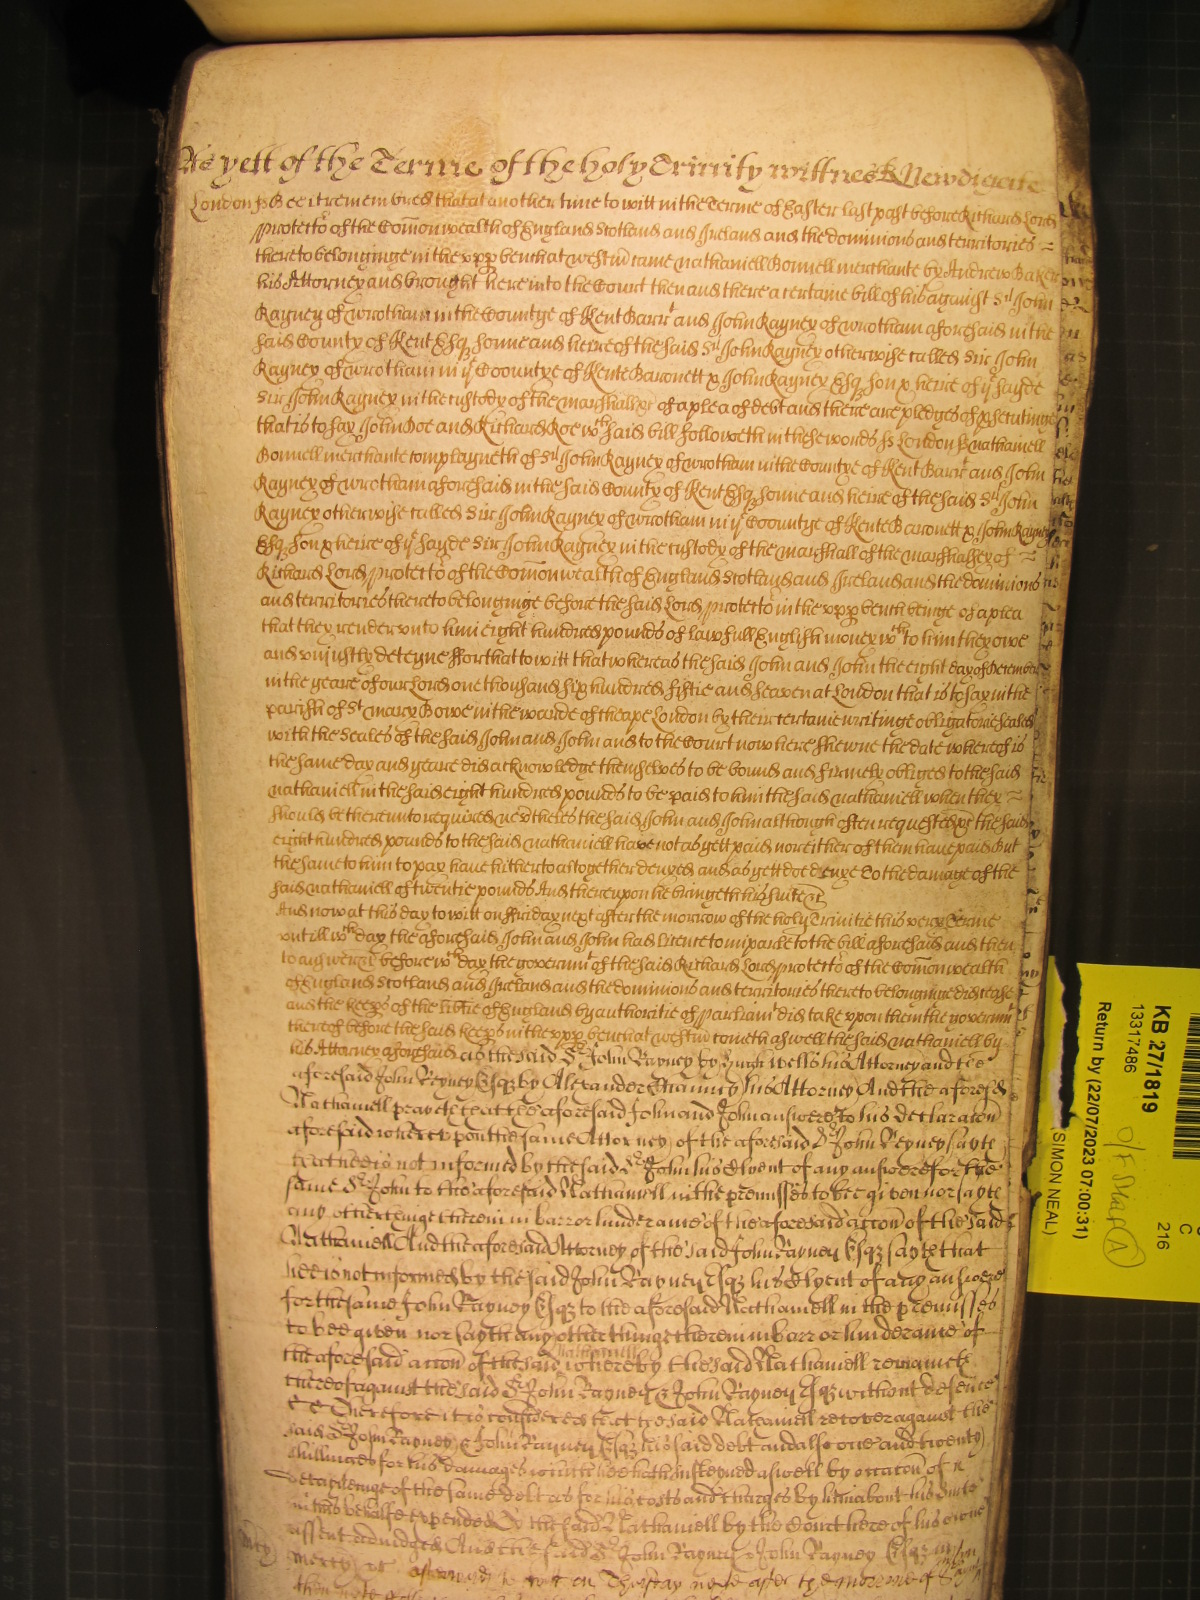 As yett of the Terme of the holy Trinity wittnes R Newdigate
London ss Bee it remembred that at another time to witt in the Terme of Easter last past before Richard Lord
Protector of the Comonwealth of England Scotland and Ireland and the dominions and territories
thereto belonginge in the upper bench at westm came Nathaniell Bonnell merchante by Andrew Baker
his Attorney and brought here into the Court then and there a certaine bill of his against Sr John
Rayney of wrotham in the Countye of Kent Barrt and John Rayney of wrotham aforesaid in the
said County of Kent Esq sonne and heire of the said Sr John Rayney otherwise called Sir John
Rayney of wrotham in ye Countye of Kente Baronett & John Rayney Esq son & heire of ye sayde
Sir John Rayney in the custody of the marshall &c of a plea of debt and there are pledges of prosecutinge
that is to say John Doe and Richard Roe wch said bill followeth in these words ss London ss Nathaniell
Bonnell merchante complayneth of Sr John Rayney of wrotham in the Countye of Kent Barrt and John
Rayney of wrotham aforesaid in the said County of Kent Esq sonne and heire of the said Sr John
Rayney otherwise called Sir John Rayney of wrotham in ye Countye of Kente Baronett & John Rayney
Esq son & heire of ye sayde Sir John Rayney in the custody of the marshall of the marshalsey of
Richard Lord Protector of the Comonwealth of England Scotland and Ireland and the dominions
and territories thereto belonginge before the said Lord Protector in the upper bench beinge of a plea
that they render unto him eight hundred pounds of lawfull English money wch to him they owe
and uniustly deteyne ffor that to witt that whereas the said John and John the eight day of December
in the yeare of our Lord one thousand six hundred fiftie and seaven at London that is to say in the
parish of St mary Bowe in the warde of cheape London by their certaine writinge obligatorie sealed
with the seales of the said John and John and to the Court now here shewne the date whereof is
the same day and yeare did acknowledge themselves to be bound and firmely obliged to the said
Nathaniell in the said eight hundred pounds to be paid to him the said Nathaniell when they
should be thereunto required neverthelesse the said John and John although often requested the said
eight hundred pounds to the said Nathaniell have not as yett paid nor either of them have paid But
the same to him to pay have hitherto altogether denyed and as yett doe denye to the damage of the
said Nathaniell of twentie pounds And thereupon he bringeth his suite &c
And now at this day to witt on ffriday next after the morrow of the holy Trinitie this very Terme
untill wch day the aforesaid John and John had licence to imparle to the bill aforesaid and then
to answere &c before wch day the governmt of the said Richard Lord Protector of the Comonwealth
of England Scotland and Ireland and the dominions and territories thereto belonginge did cease
and the keeps of the libtie of England by authoritie of Parliamt did take upon them the governmt
thereof before the said keeps in the upper bench at westm cometh aswell the said Nathaniell by
his Attorney aforesaid as the said Sr John Rayney by Hugh Wells his Attorney and the
aforesaid John Rayney Esqz by Alexander his Attorney And the aforesd
Nathaniell prayeth that the aforesaid John and John answere to his declaracon
aforesaid whereupon the same Attorney of the aforesaid Sr John Rayney sayth
that hee is not informed by the said Sr John his Clyent of any answere for the
same Sr John to the aforesaid Nathaniell in the premisses to bee given nor sayth
any other thinge therein in barr or hinderance of the aforesaid accon of the said
Nathaniell And the aforesaid Attorney of the said John Rayney Esqz sayth that
hee is not informed by the said John Rayney Esqz his Clyent of any answere
for the same John Rayney Esqz to the aforesaid Nathaniell in the premisses
to bee given nor sayth any other thinge therein in barr or hinderance of
the aforesaid accon of the said Nathaniell whereby the said Nathaniell remaineth
thereof against the said Sr John Rayney & John Rayney Esqz without defence
&c Therefore it is considered that the said Nathaniell recover against the
said Sr John Rayney & John Rayney Esqz his said debt and also one and twenty
shillinges for his damages which hee hath susteyned aswell by occacon of ye
deteyninge of the same debt as for his costs and charges by him about his suite
in this behalfe expended to the said Nathaniell by the Court here of his owne
assent adiudged And the said Sr John Rayney & John Rayney Esqz in
mercy &c afterwards to witt on Thursday next after the morrow of
KB 27/1819
13317486
C
216
Return by (22/07/2023 07:00:31)
SIMON NEAL)